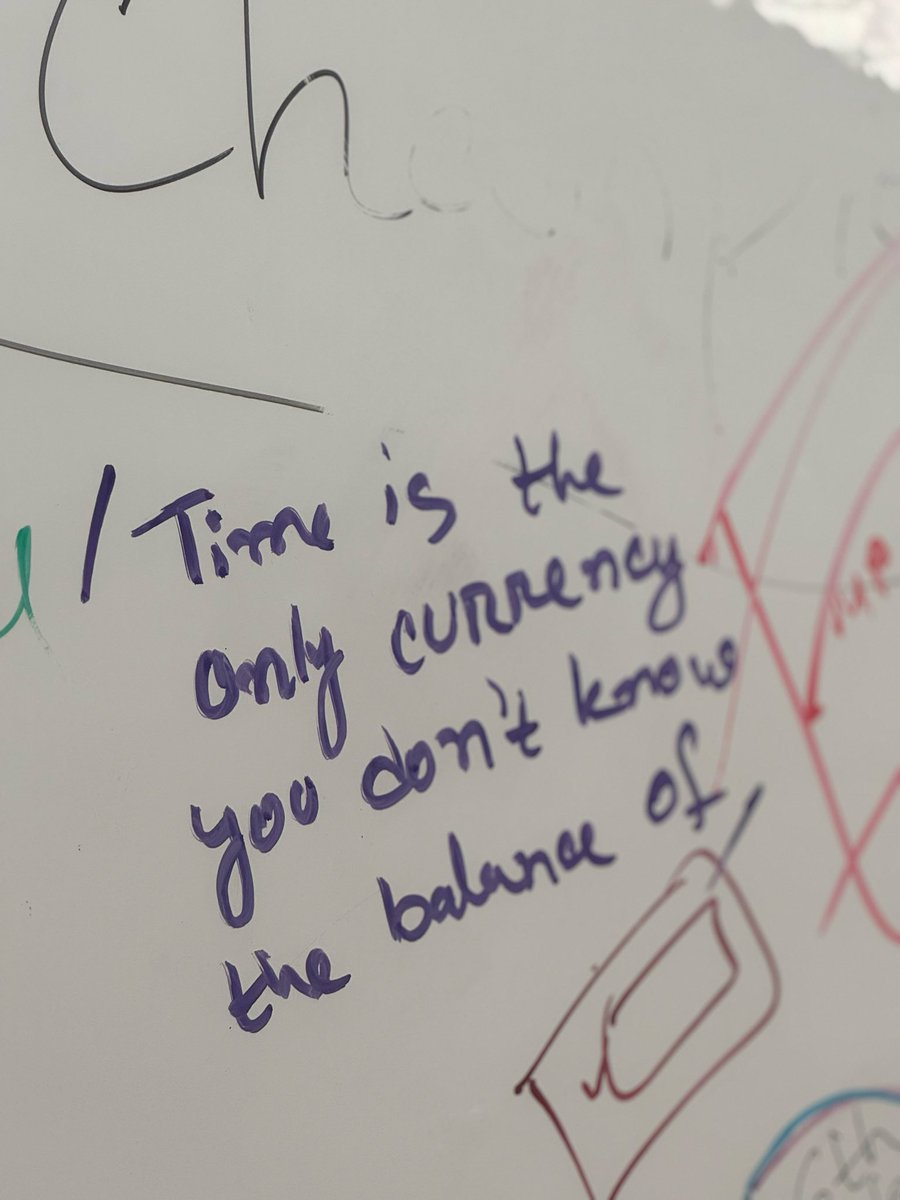 Ch
/ Time is the
only currency
you don't know
the balance of /